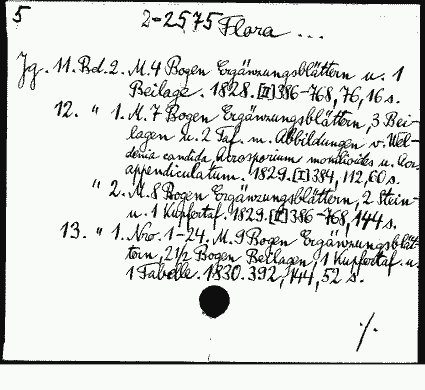 5
2-2575 Flora ...
Jg. 11. Bd. 2. M. 4 Bogen Ergänzungsblättern u. 1
Beilage. 1828. [II] 386-768, 76, 16 s.
12. " 1. M. 7 Bogen Ergänzungsblättern, 3 Bei-
lagen u. 2 Taf. m. Abbildungen v. Wel-
denia candida, Acrosporium monilioides u. Cor.
appendiculatum. 1829. [I] 384, 112, 60 s.
" 2. M. 8 Bogen Ergänzungsblättern, 2 Stein-
u. 1 Kupfertaf. 1829. [II] 386-768, 144 s.
13. " 1. Nro. 1-24. M. 9 Bogen Ergänzungsblät-
tern, 2 1/2 Bogen Beilagen, 1 Kupfertaf. u.
1 Tabelle. 1830. 392, 144, 52 s.
./.